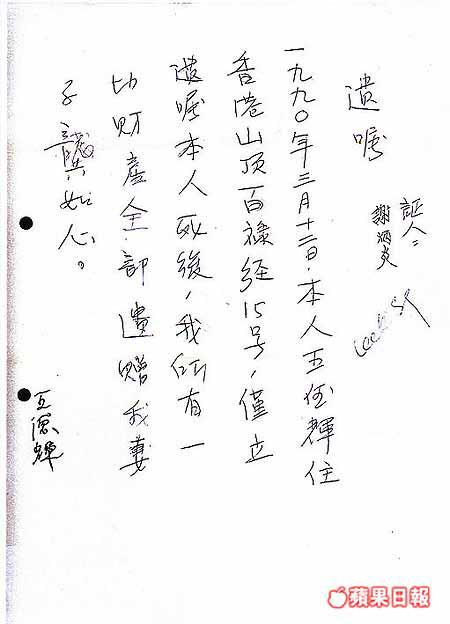 証人：
謝炳炎
遺嘱
一九九〇年三月十二日，本人王德輝住
香港山顶百祿径15号，僅立
遺嘱本人死後，我所有一
切财產全部遺贈我妻
子龔如心。
王德輝
蘋果日報